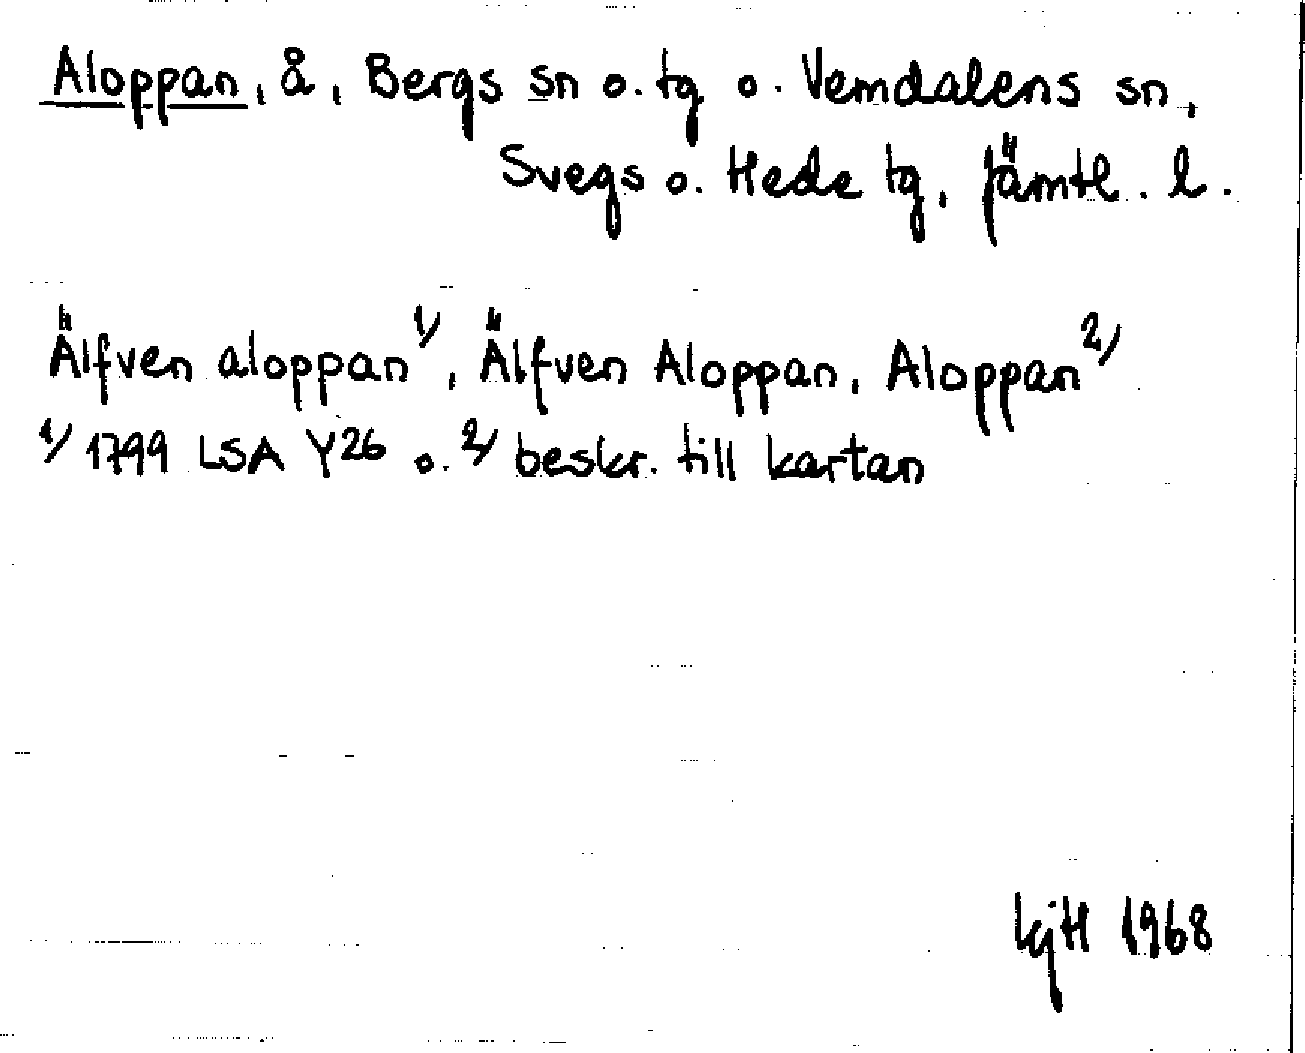 Aloppan, å, Bergs sn o. tg o. Vemdalens sn,
Svegs o. Hede tg, Jämtl. l.
Älfven aloppan 1), Älfven Aloppan, Aloppan 2)
1) 1799 LSA Y26 o. 2) beskr. till kartan
KjH 1968